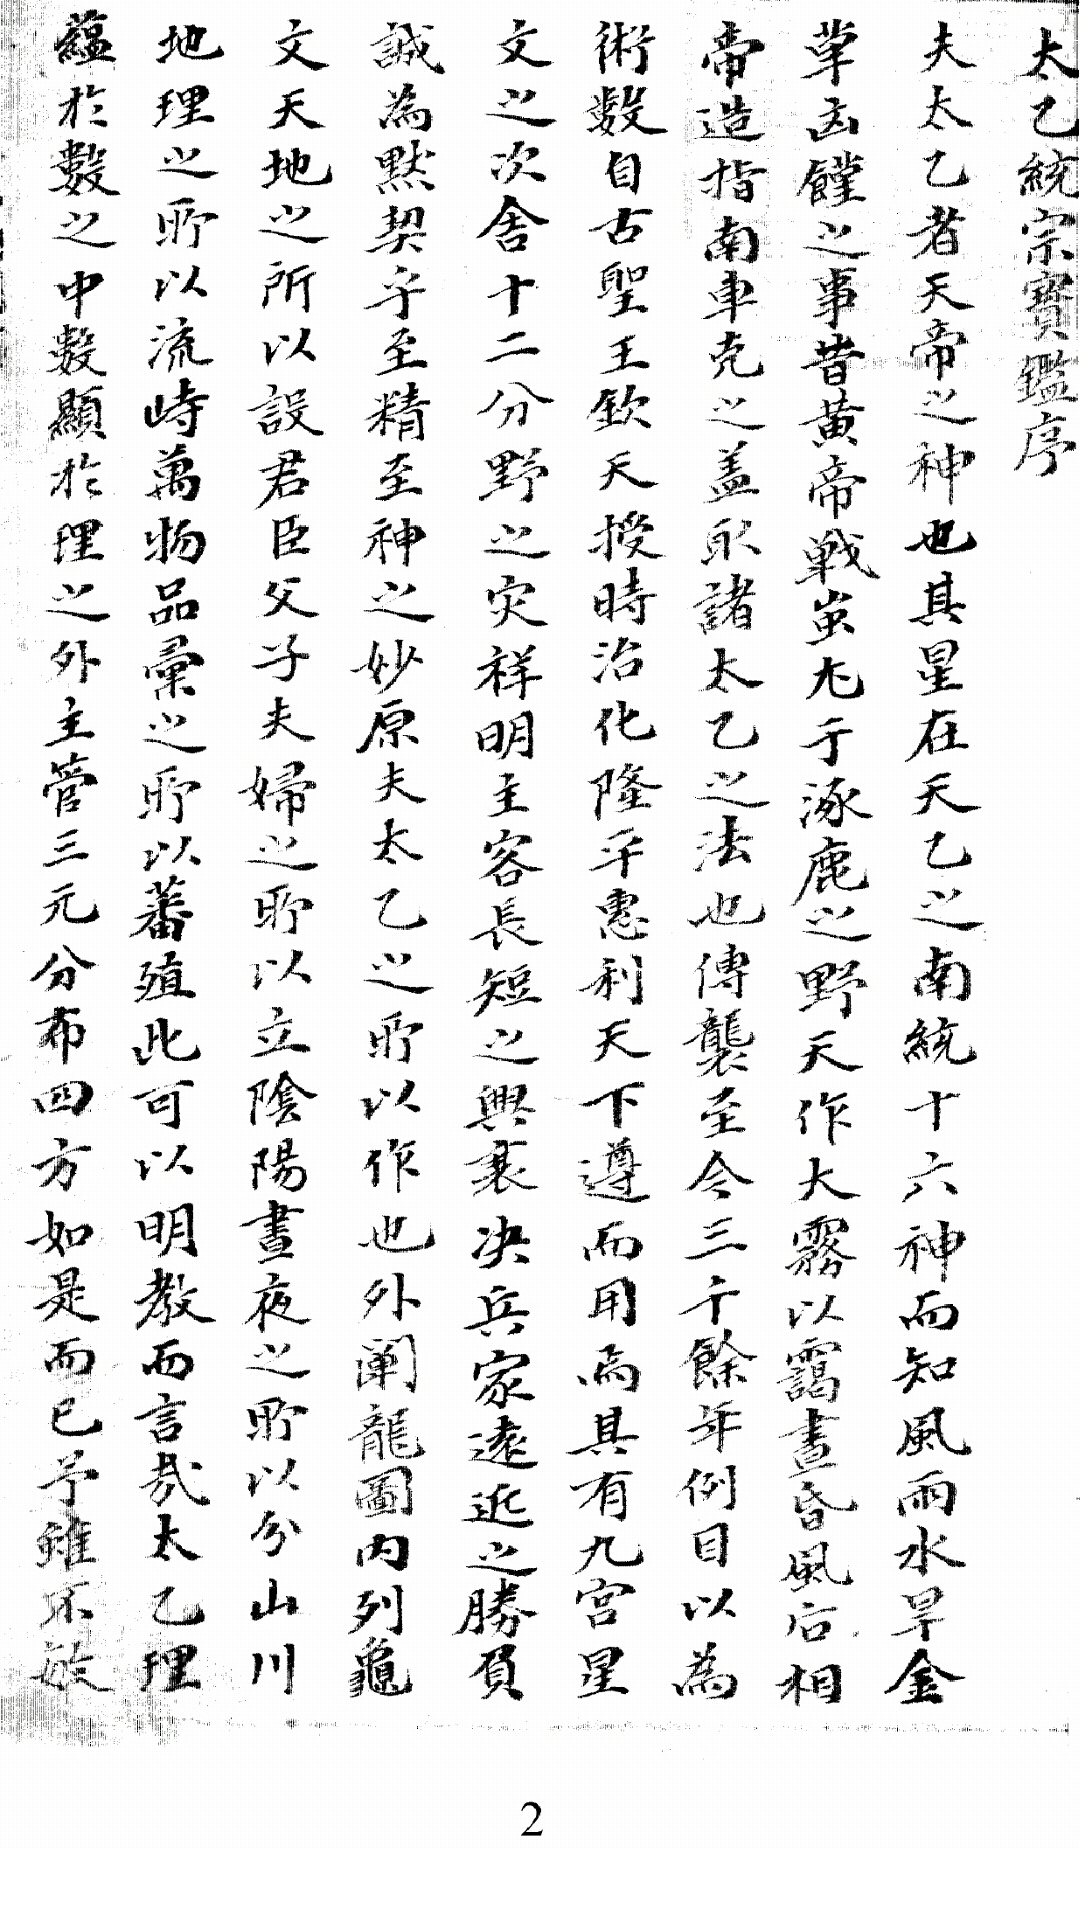 太乙統宗寳鑑序
夫太乙者天帝之神也其星在天乙之南統十六神而知風雨水旱金
革凶饉之事昔黄帝戦蚩尤于涿鹿之野天作大霧以靄晝昏風后相
帝造指南車克之盖取諸太乙之法也傳襲至今三千餘年例目以為
術數自古聖王欽天授時治化隆平惠利天下遵而用焉其有九宫星
文之次舍十二分野之灾祥明主客長短之興衰决兵家遠近之勝負
誠為黙契乎至精至神之妙原夫太乙之所以作也外闡龍圖内列龜
文天地之所以設君臣父子夫婦之所以立陰陽晝夜之所以分山川
地理之所以流峙萬物品彚之所以蕃殖此可以明教而言哉太乙理
藴於數之中數顯於理之外主管三元分布四方如是而已予雖不敏
2